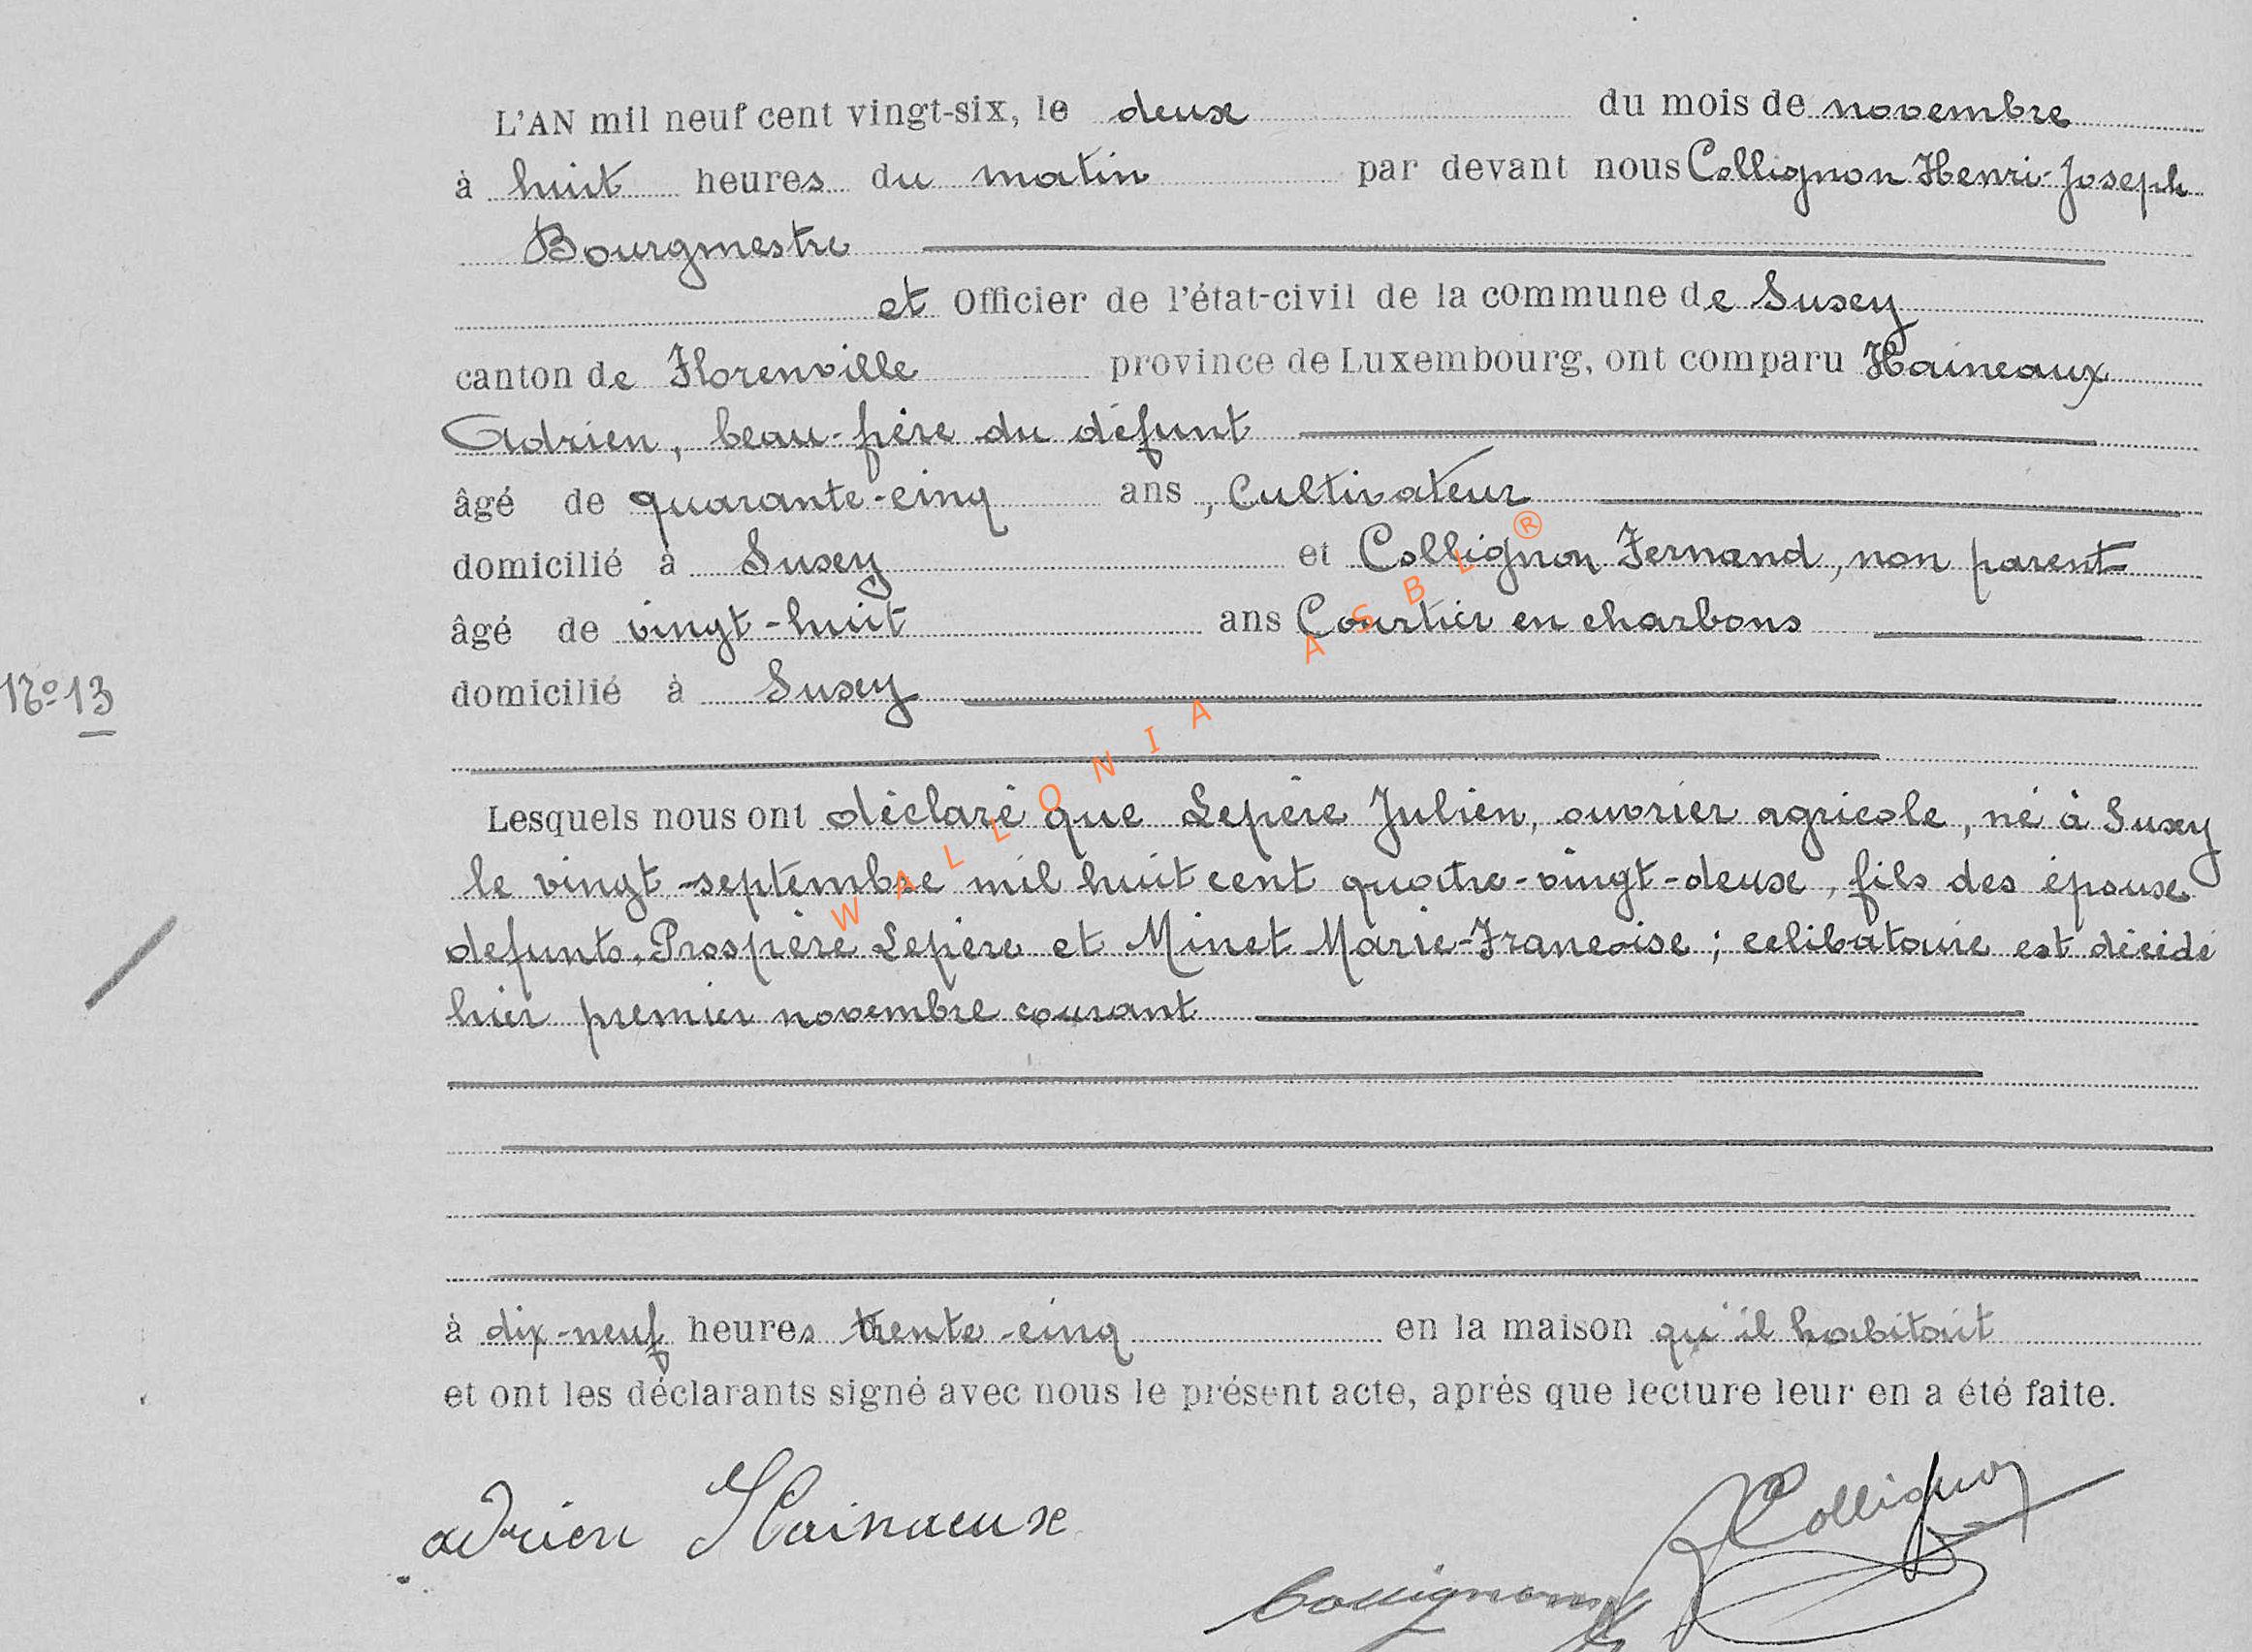 L'AN mil neuf cent vingt-six, le deux du mois de novembre
à huit heures du matin par devant nous Collignon Henri-Joseph
Bourgmestre
et Officier de l'état-civil de la commune de Suxey
canton de Florenville province de Luxembourg, ont comparu Haineaux
Adrien, beau-frère du défunt
âgé de quarante-cinq ans, Cultivateur
domicilié à Suxey et Collignon Fernand, non parent
âgé de vingt-huit ans Courtier en charbons
domicilié à Suxey
N° 13
Lesquels nous ont déclaré que Lepère Julien, ouvrier agricole, né à Suxey
le vingt-septembre mil huit cent quatre-vingt-deux, fils des époux
defunts, Prospère Lepère et Minet Marie-Francoise; celibataire est décédé
hier premier novembre courant
à dix-neuf heures trente-cinq en la maison qu'il habitait
et ont les déclarants signé avec nous le présent acte, après que lecture leur en a été faite.
adrien Hainaeux
Collignon
Collignon
WALLONIA ASBL ®